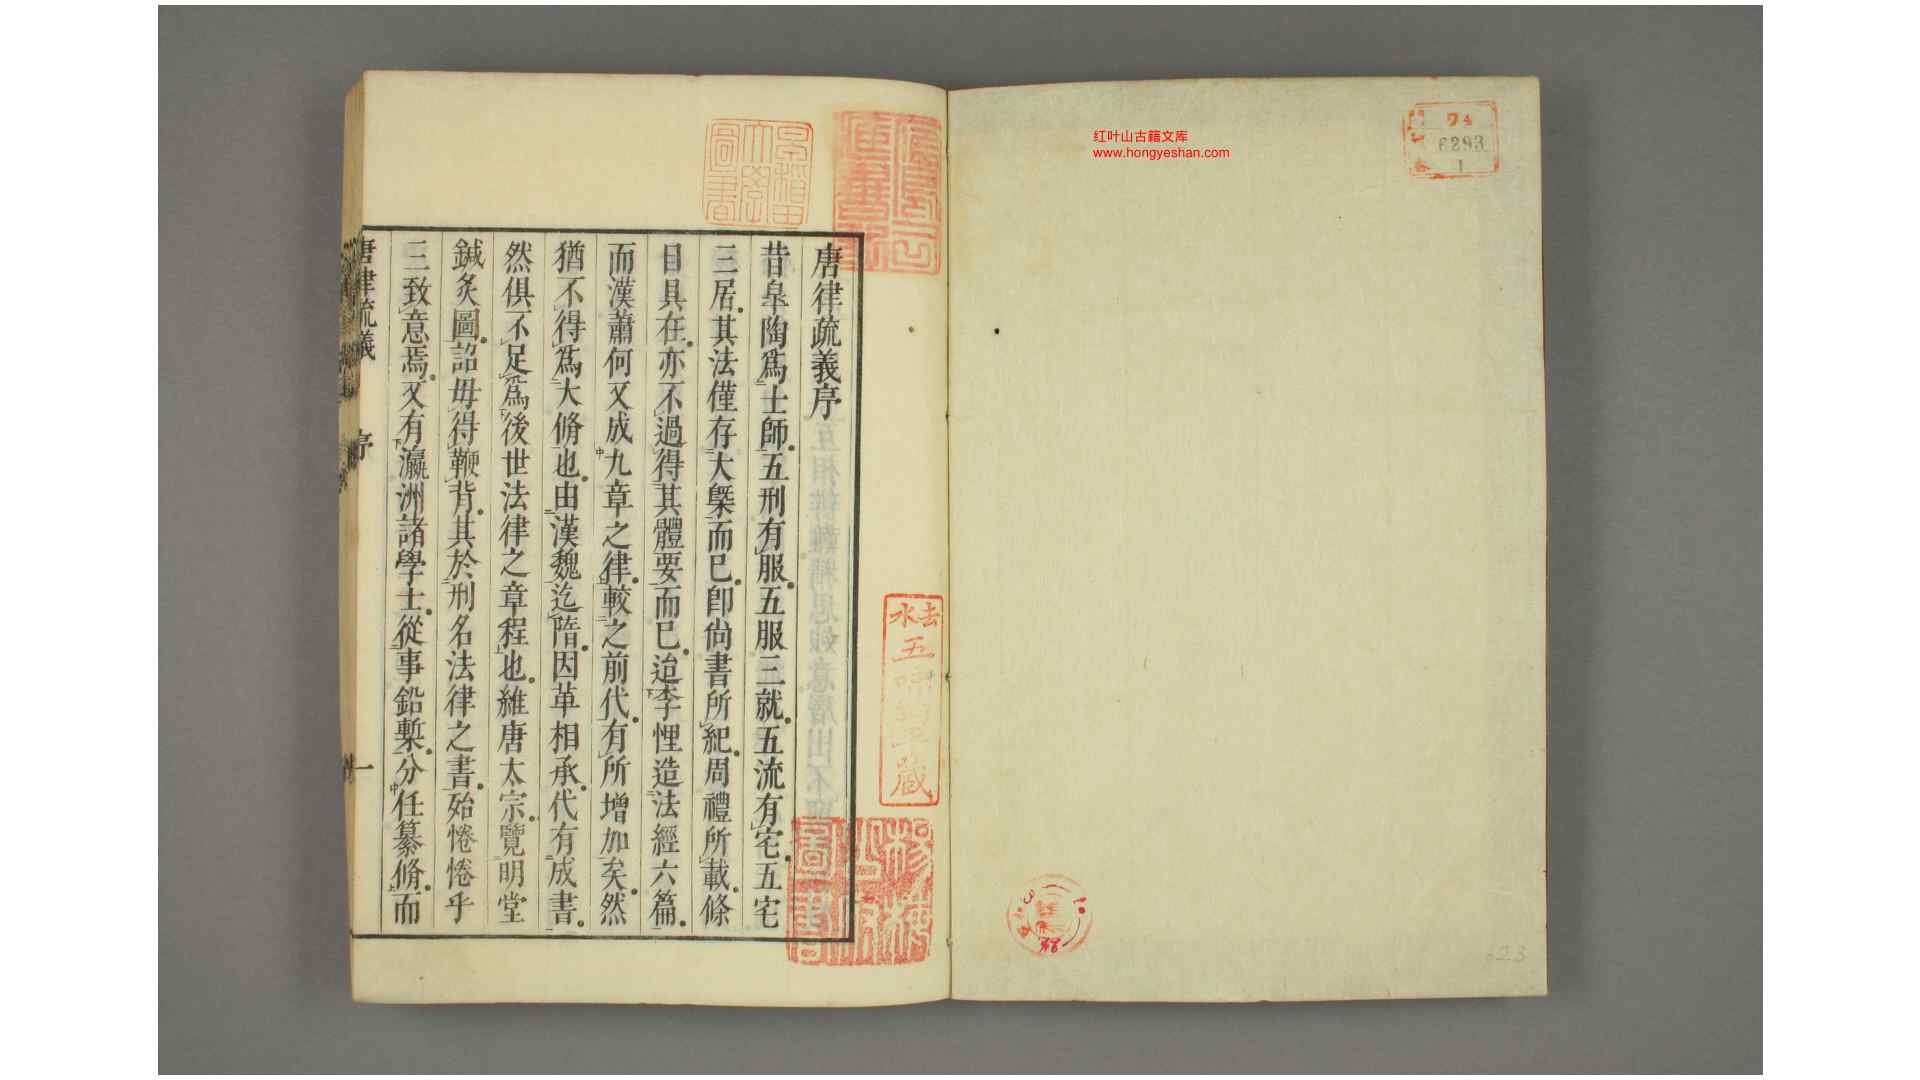 唐律疏義序
昔皐陶爲士師五刑有服五服三就五流有宅五宅
三居其法僅存大槩而已卽尙書所紀周禮所載條
目具在亦不過得其體要而已迨李悝造法經六篇
而漢蕭何又成九章之律較之前代有所增加矣然
猶不得爲大脩也由漢魏迄隋因革相承代有成書
然俱不足爲後世法律之章程也維唐太宗覽明堂
鍼灸圖詔毋得鞭背其於刑名法律之書始惓惓乎
三致意焉又有瀛洲諸學士從事鉛槧分任纂脩而
唐律疏義 序 一
红叶山古籍文库
www.hongyeshan.com
6293
1